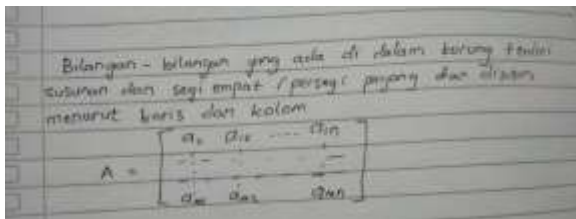 Bilangan - bilangan yang ada di dalam kurung terdiri
susunan dan segi empat / persegi panjang dan disusun
menurut baris dan kolom
a₁₂ .... a₁n
A =